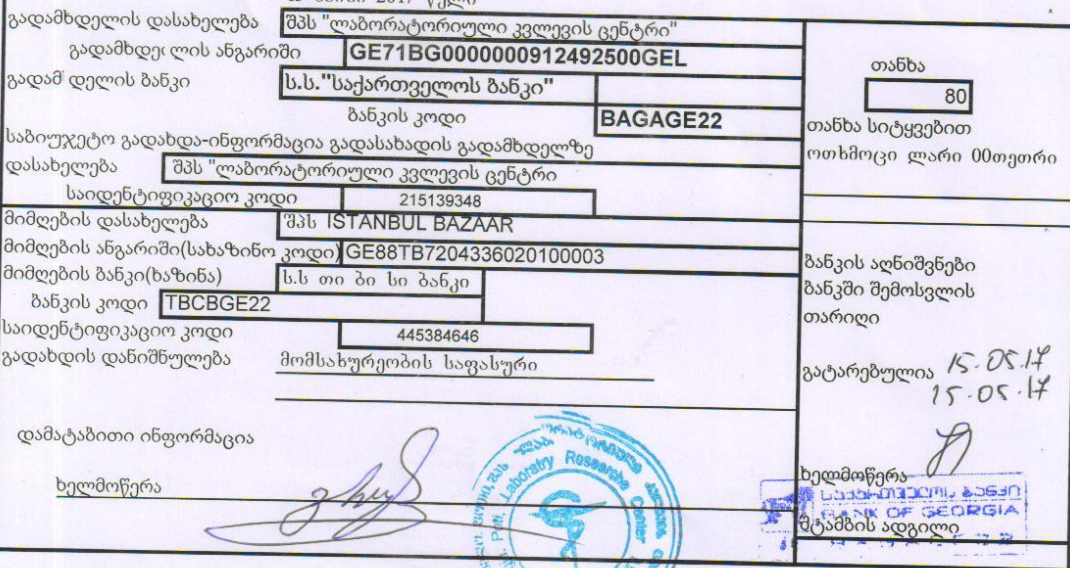 გადამხდელის დასახელება შპს "ლაბორატორიული კვლევის ცენტრი"
გადამხდელის ანგარიში GE71BG0000000912492500GEL
გადამ დელის ბანკი ს.ს."საქართველოს ბანკი"
ბანკის კოდი BAGAGE22
საბიუჯეტო გადახდა-ინფორმაცია გადასახადის გადამხდელზე
დასახელება შპს "ლაბორატორიული კვლევის ცენტრი
საიდენტიფიკაციო კოდი 215139348
მიმღების დასახელება შპს ISTANBUL BAZAAR
მიმღების ანგარიში(სახაზინო კოდი) GE88TB7204336020100003
მიმღების ბანკი(ხაზინა) ს.ს თი ბი სი ბანკი
ბანკის კოდი TBCBGE22
საიდენტიფიკაციო კოდი 445384646
გადახდის დანიშნულება მომსახურეობის საფასური
დამატაბითი ინფორმაცია
ხელმოწერა
თანხა
80
თანხა სიტყვებით
ოთხმოცი ლარი 00თეთრი
ბანკის აღნიშვნები
ბანკში შემოსვლის
თარიღი
გატარებულია 15.05.17
15.05.17
ხელმოწერა
საქართველოს ბანკი
BANK OF GEORGIA
შტამბის ადგილი
Poti. Laboratry Researche Center